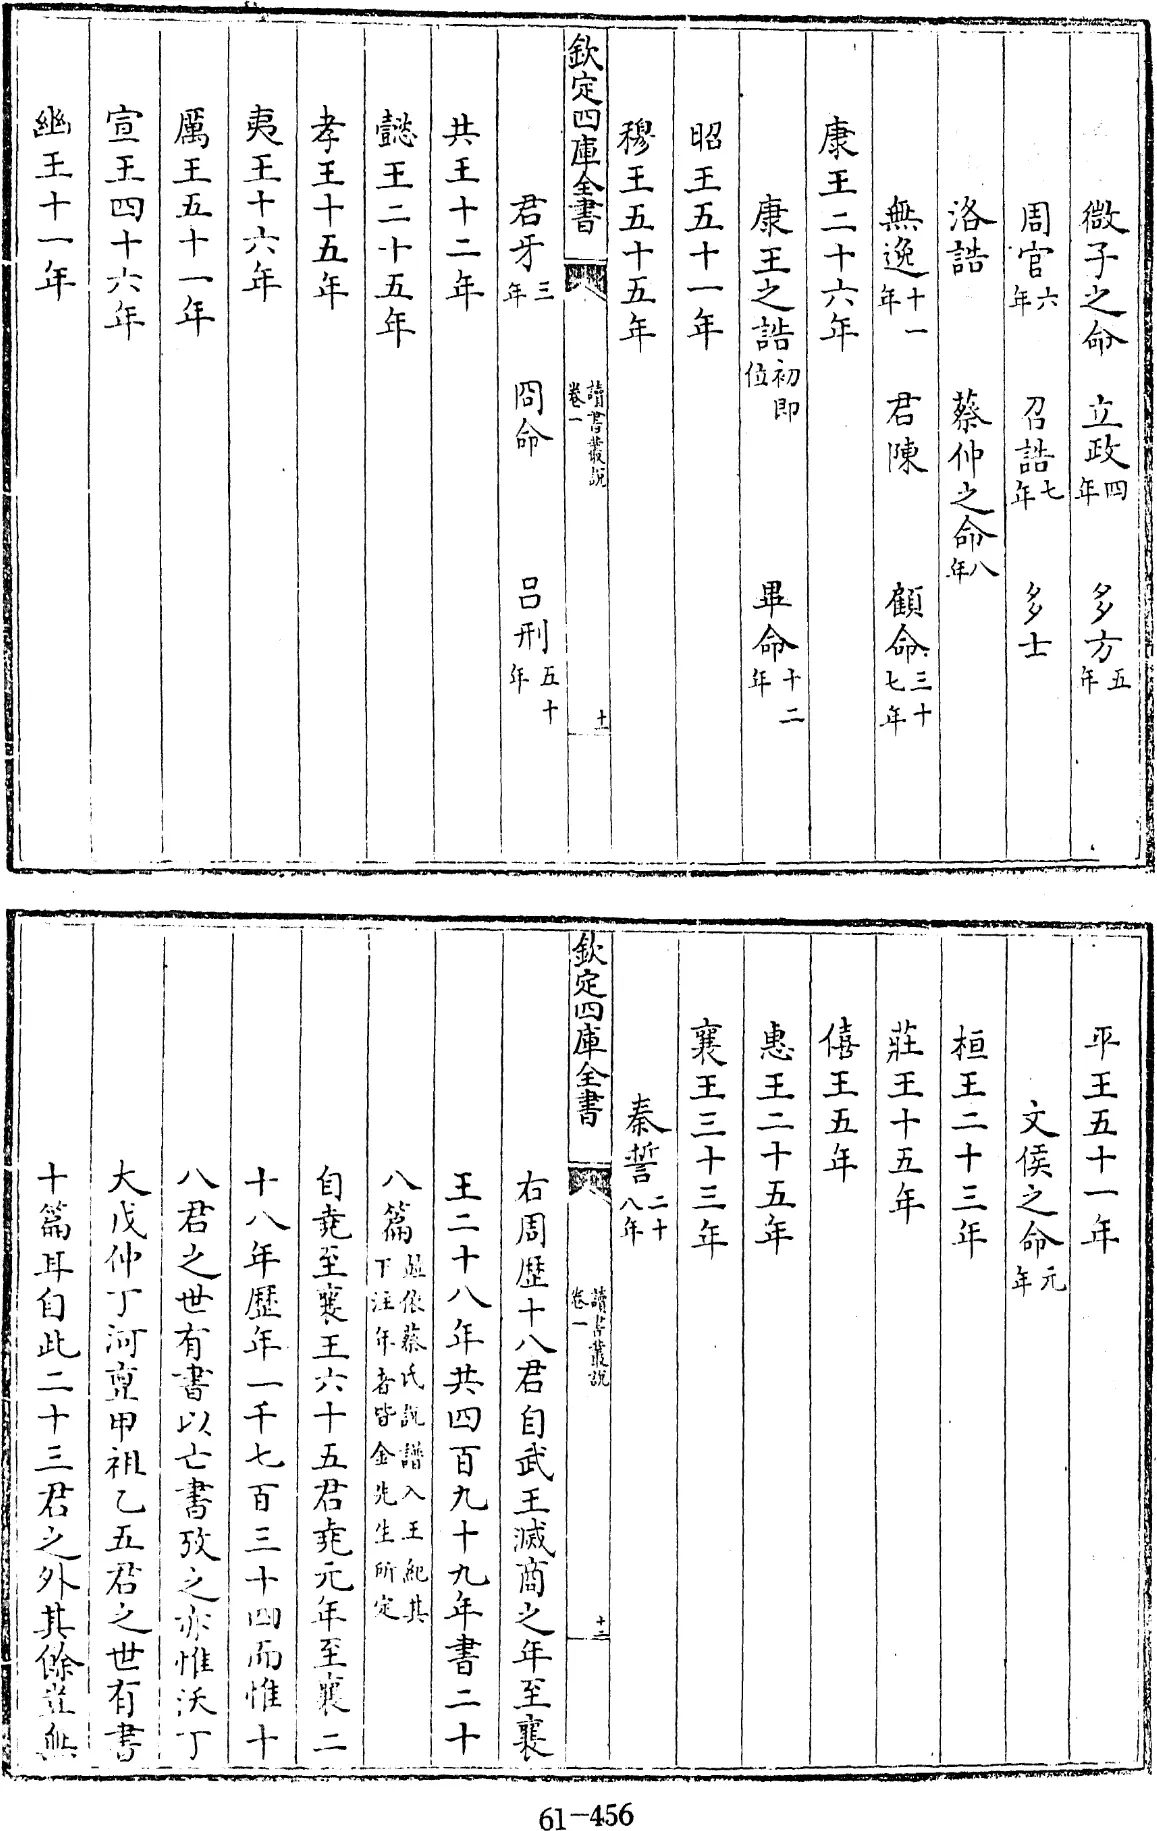 微子之命　立政四年　多方五年
周官六年　召誥七年　多士
洛誥　蔡仲之命八年
無逸十一年　君陳　顧命三十七年
康王二十六年
康王之誥初即位　畢命十二年
昭王五十一年
穆王五十五年
欽定四庫全書　讀書叢說卷一　十一
君牙三年　冏命　呂刑五十年
共王十二年
懿王二十五年
孝王十五年
夷王十六年
厲王五十一年
宣王四十六年
幽王十一年
平王五十一年
文侯之命元年
桓王二十三年
莊王十五年
僖王五年
惠王二十五年
襄王三十三年
秦誓二十八年
欽定四庫全書　讀書叢說卷一　十二
右周歷十八君自武王滅商之年至襄
王二十八年共四百九十九年書二十
八篇並依蔡氏說譜入王紀其下注年者皆金先生所定
自堯至襄王六十五君堯元年至襄二
十八年歷年一千七百三十四而惟十
八君之世有書以亡書攷之亦惟沃丁
大戊仲丁河亶甲祖乙五君之世有書
十篇耳自此二十三君之外其餘豈無
61-456